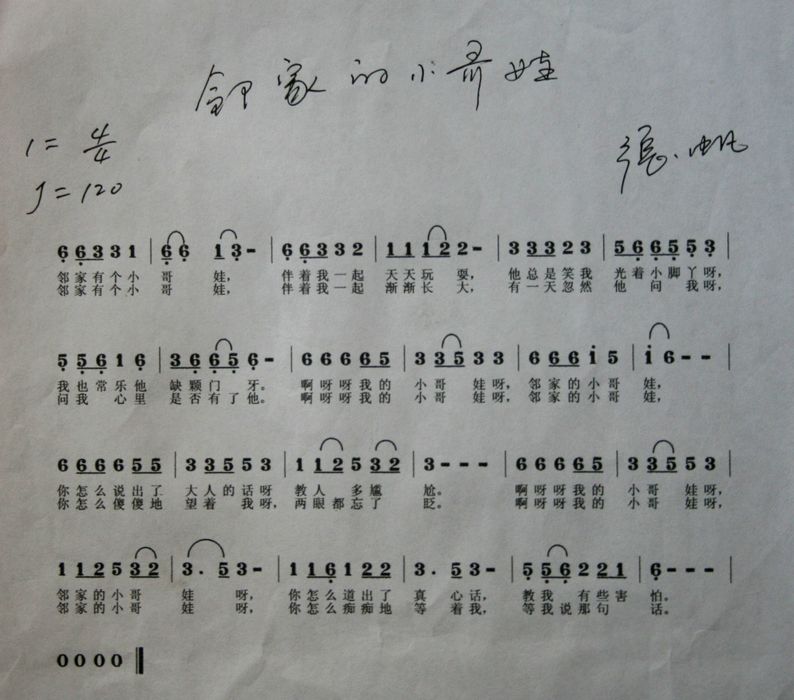 邻家的小哥娃
1= 4/4
张帆
J=120
6 6 3 3 1 | 6 6 1 3 - | 6 6 3 3 2 | 1 1 1 2 2 - | 3 3 3 2 3 | 5 6 6 5 5 3 |
邻家有个小 哥 娃, 伴着我一起 天天玩 耍, 他总是笑我 光着小脚丫呀,
邻家有个小 哥 娃, 伴着我一起 渐渐长 大, 有一天忽然 他 问 我呀,
5 5 6 1 6 | 3 6 6 5 6 - | 6 6 6 6 5 | 3 3 5 3 3 | 6 6 6 i 5 | i 6 - - |
我也常乐他 缺颗门 牙。 啊呀呀我的 小哥 娃呀, 邻家的小哥 娃,
问我 心里 是否有了他。 啊呀呀我的 小哥 娃呀, 邻家的小哥 娃,
6 6 6 6 5 5 | 3 3 5 5 3 | 1 1 2 5 3 2 | 3 - - - | 6 6 6 6 5 | 3 3 5 5 3 |
你怎么说出了 大人的话呀 教人 多尴 尬。 啊呀呀我的 小哥 娃呀,
你怎么傻傻地 望着 我呀, 两眼都忘了 眨。 啊呀呀我的 小哥 娃呀,
1 1 2 5 3 2 | 3 . 5 3 - | 1 1 6 1 2 2 | 3 . 5 3 - | 5 5 6 2 2 1 | 6 - - - |
邻家的小哥 娃 呀, 你怎么道出了 真 心话, 教我 有些害 怕。
邻家的小哥 娃 呀, 你怎么痴痴地 等 着我, 等我说那句 话。
0 0 0 0 ‖